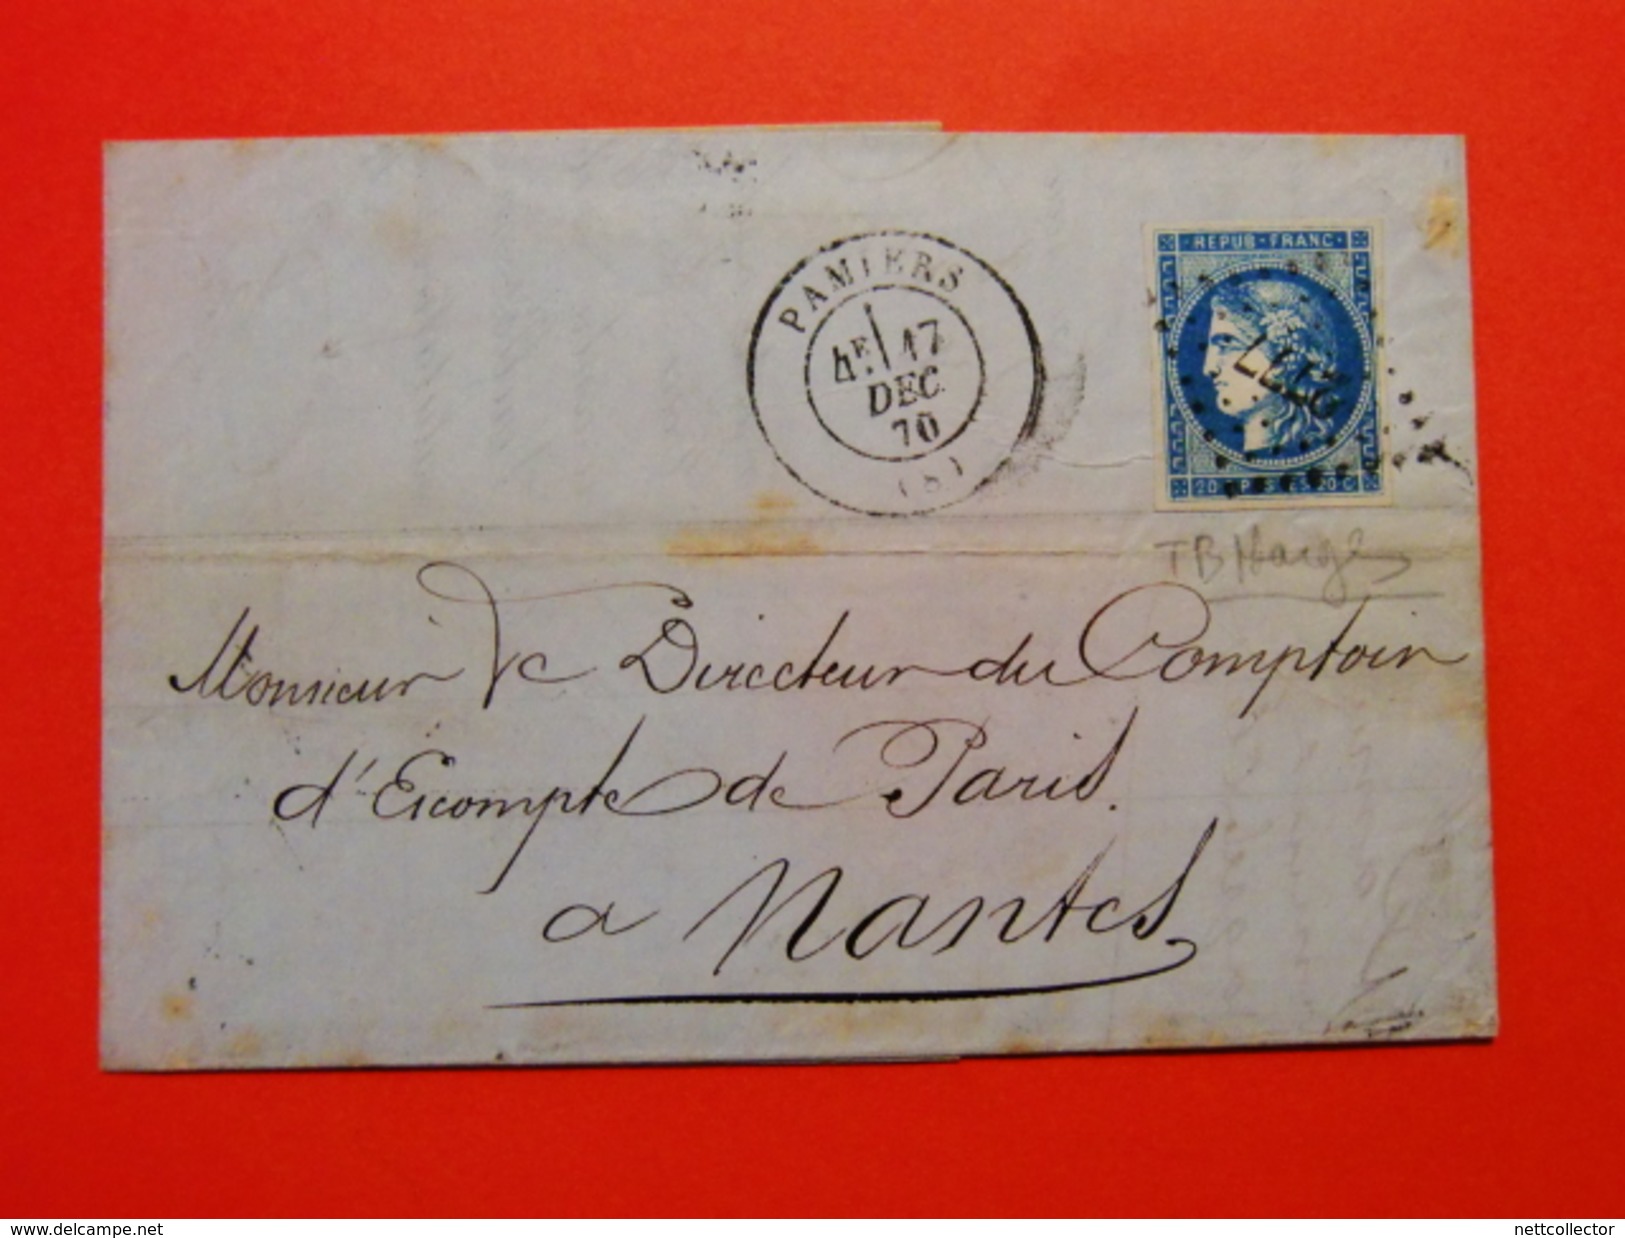 REPUB·FRANC·
PAMIERS
4E 17
DEC.
70
(8)
2777
20 C POSTES 20 C
TB Marges
Monsieur le Directeur du Comptoir
d'Escompte de Paris.
a Nantes
www.delcampe.net
nettcollector